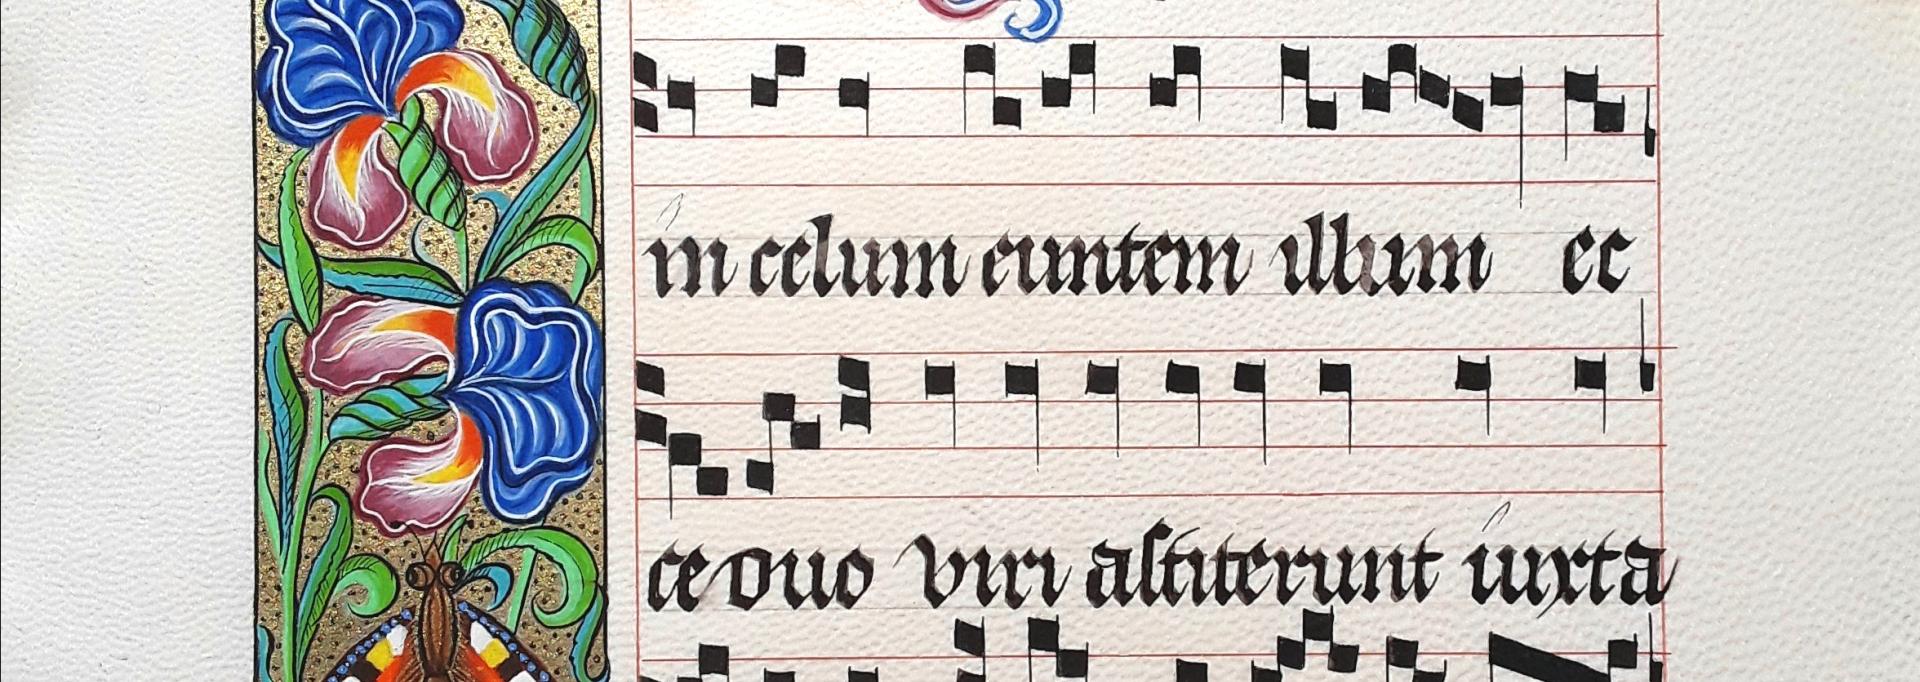 in celum euntem illum ec
ce duo viri astiterunt iuxta